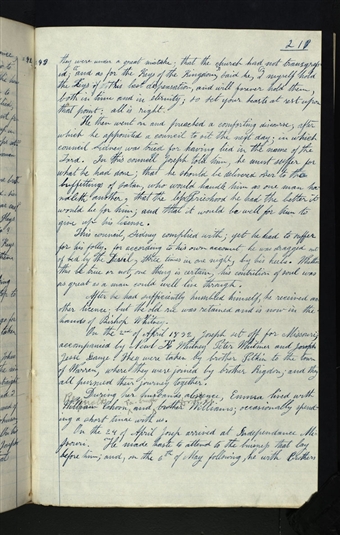 219
they were under a great mistake; that the church had not transgres-
ed; and as for the Keys of the Kingdom, said he, I myself hold
the Keys of this last dispensation, and will forever hold them,
both in time and in eternity; so set your hearts at rest upon
that point; all is right.
He then went on and preached a comforting discourse; after
which he appointed a council to sit the next day; in which
council Sidney was tried for having lied in the name of the
Lord. In this council Joseph told him, he must suffer for
what he had done; that he should be delivered over to the
buffetings of satan, who would handle him as one man ha-
ndleth another; that the less priesthood he had the better it
would be for him; and that it would be well for him to
give up his license.
This council, Sidney complied with; yet he had to suffer
for his folly, for according to his own account he was dragged out
of bed by the Devil, three times in one night, by his heels. Whether
this be true or not, one thing is certain, his contrition of soul was
as great as a man could well live through.
After he had sufficiently humbled himself, he received an-
other license; but the old one was retained and is now in the
hands of Bishop Whitney.
On the 2nd of April 1832 Joseph set off for Missouri,
accompanied by Newel K. Whitney Peter Whitmer and
Jesse Gauze They were taken by brother Pitkin to the town
of Warren; where they were joined by brother Rigdon; and they
all pursued their journey together.
During her husbands absence, Emma lived with
William Cahoon, and brother Williams; occasionally spend-
ing a short time with us.
On the 24 of April Josep arrived at Independance Mi-
ssouri. He made haste to attend to the business that lay
before him; and, on the 6th of May following, he with Brothers